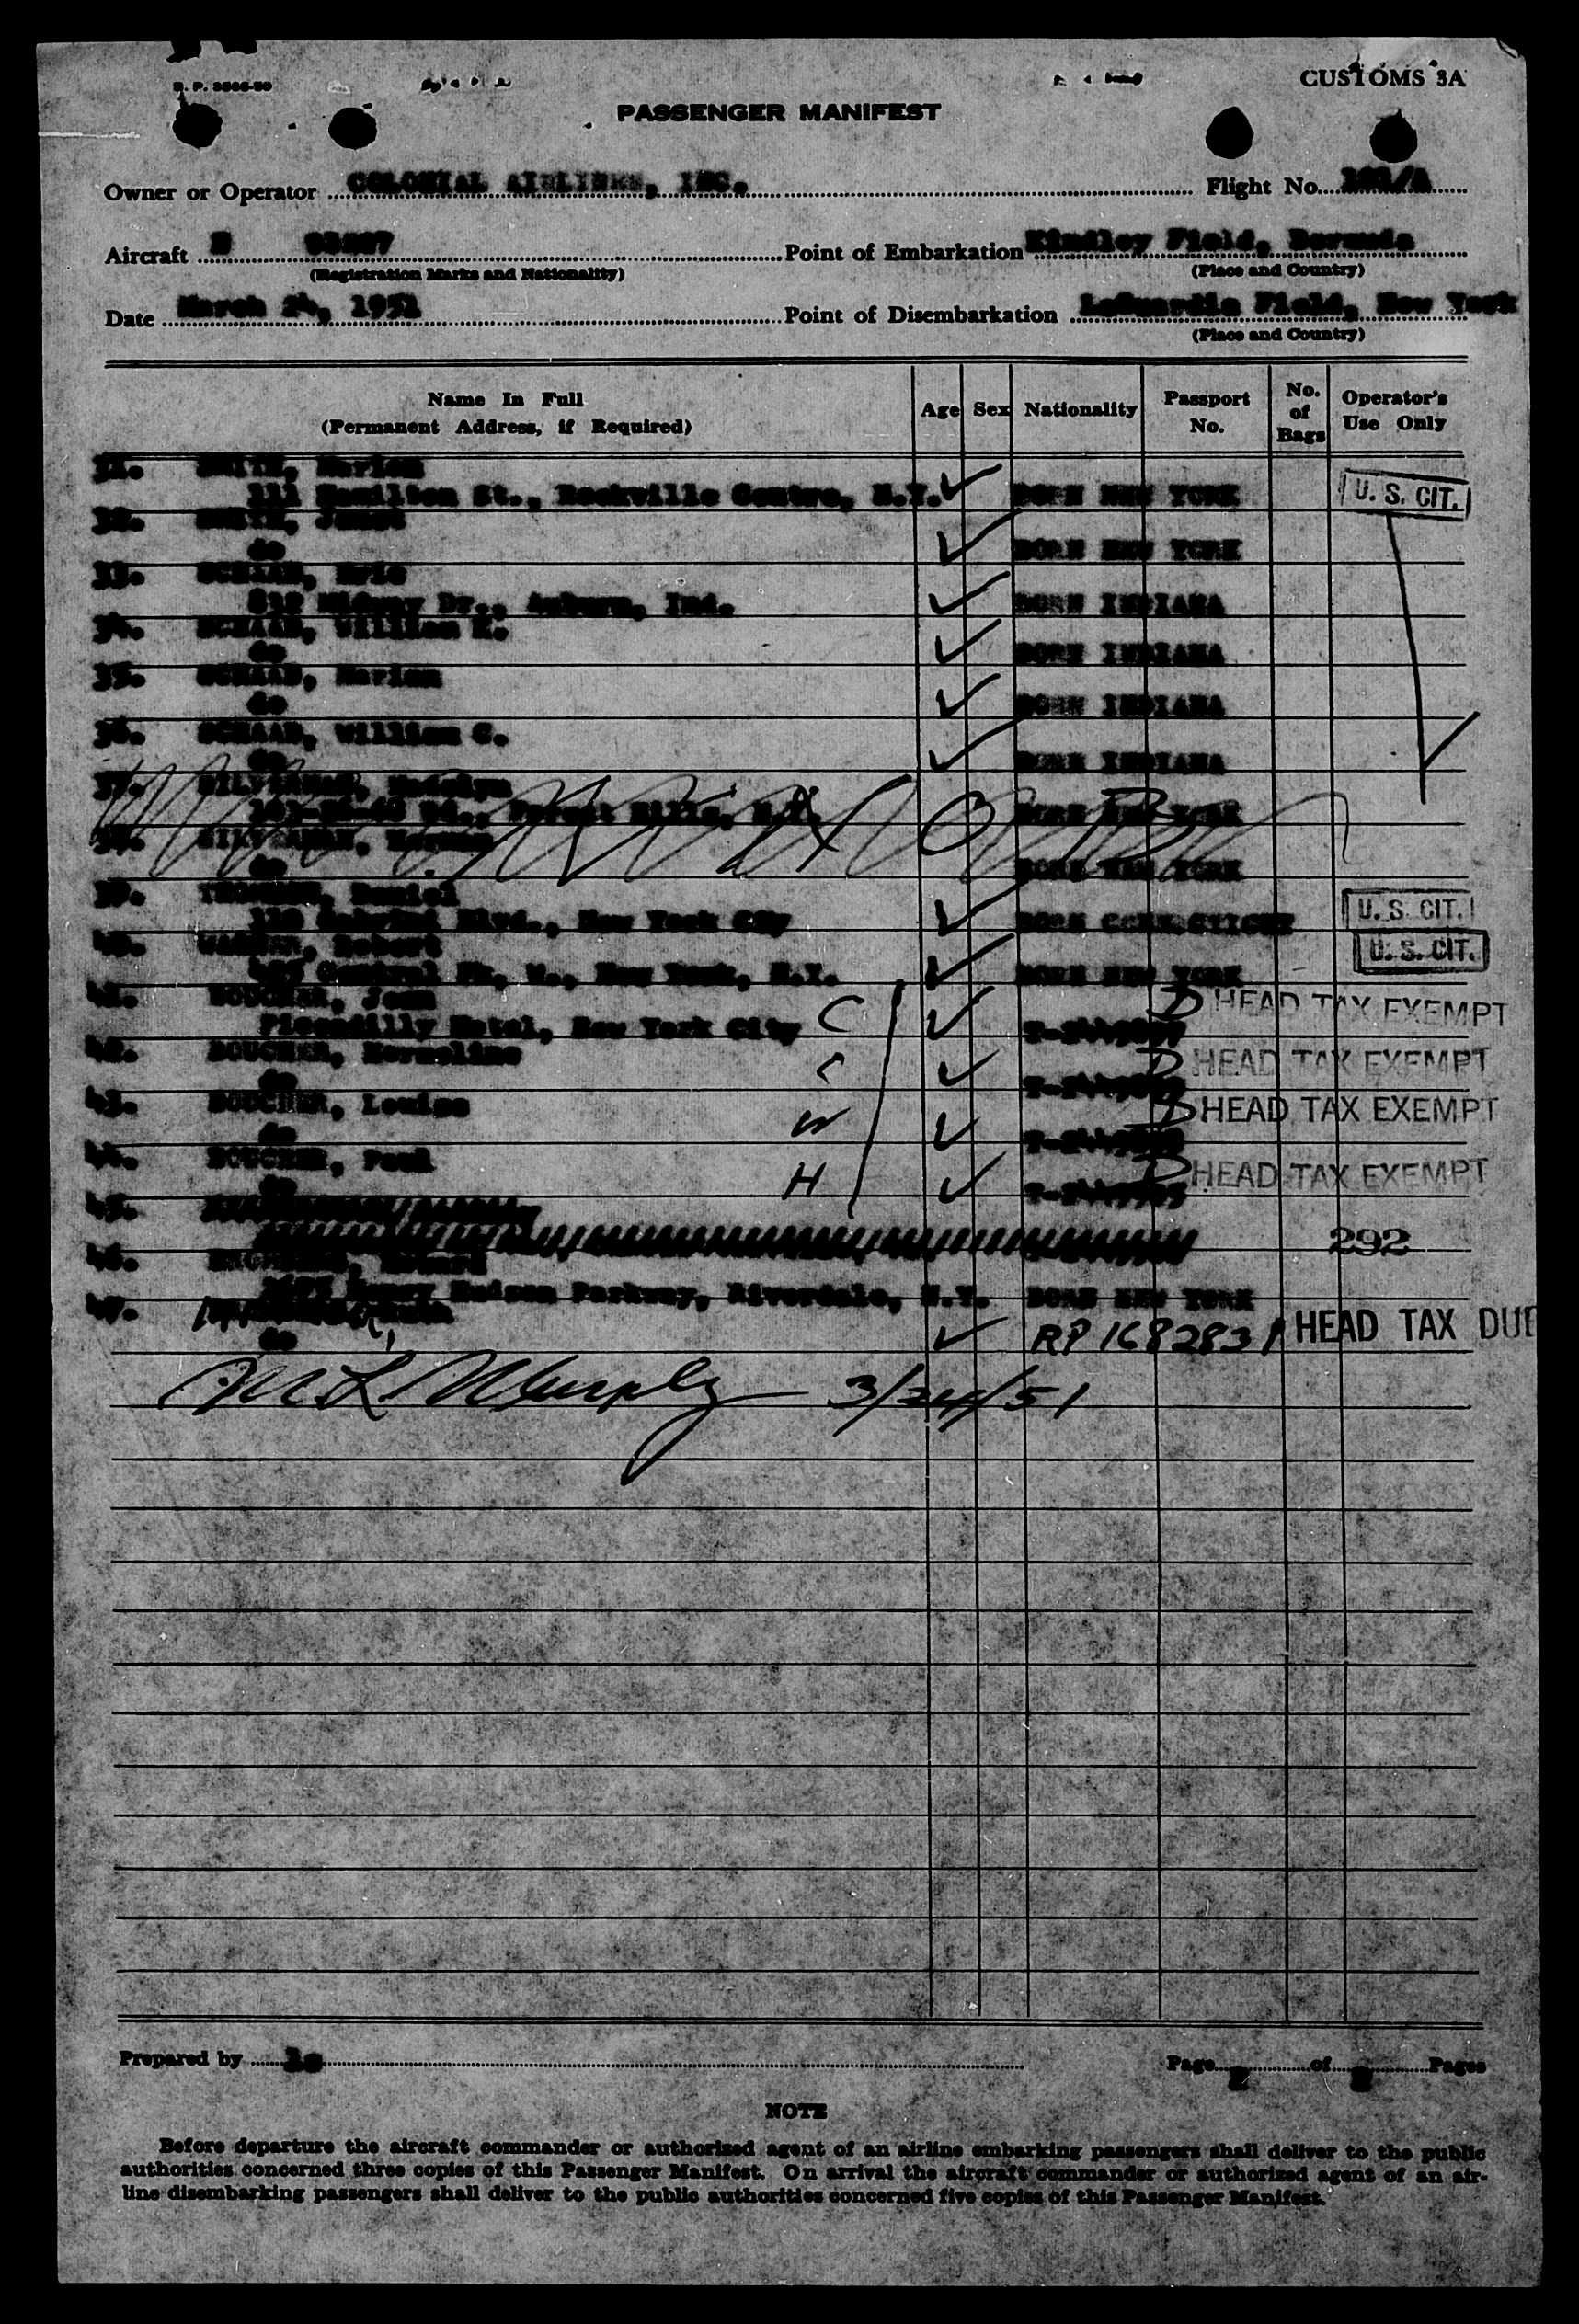 CUSTOMS 3A
PASSENGER MANIFEST
Owner or Operator COLONIAL AIRLINES, INC. Flight No.
Aircraft N Point of Embarkation Kindley Field, Bermuda
(Registration Marks and Nationality) (Place and Country)
Date March 24, 1951 Point of Disembarkation LaGuardia Field, New York
(Place and Country)
Name In Full (Permanent Address, if Required) Age Sex Nationality Passport No. No. of Bags Operator's Use Only
31. SMITH, Marion
111 Hamilton St., Rockville Centre, N.Y. BORN NEW YORK U. S. CIT.
32. SMITH,
do BORN NEW YORK
33. SCHAAB,
Midway Dr., Auburn, Ind. BORN INDIANA
34. SCHAAB, William H.
do BORN INDIANA
35. SCHAAB, Marian
do BORN INDIANA
36. SCHAAB, William C.
do BORN INDIANA
37. SILVERMAN,
Forest Hills, N.Y. BORN NEW YORK
38. SILVERMAN,
do BORN NEW YORK
39. Daniel
Blvd., New York City BORN CONNECTICUT U. S. CIT.
40. Robert
Central Pk, W., New York, N.Y. BORN NEW YORK U. S. CIT.
41. BOUCHER, Jean
Piccadilly Hotel, New York City C HEAD TAX EXEMPT
42. BOUCHER, Hermeline
do C HEAD TAX EXEMPT
43. BOUCHER, Louise
do W HEAD TAX EXEMPT
44. BOUCHER, Paul
do H HEAD TAX EXEMPT
45.
292
46.
Henry Hudson Parkway, Riverdale, N.Y. BORN NEW YORK
47.
do RP 1682831 HEAD TAX DUE
M L Murphy 3/24/51
Prepared by Page 2 of 2 Pages
NOTE
Before departure the aircraft commander or authorized agent of an airline embarking passengers shall deliver to the public
authorities concerned three copies of this Passenger Manifest. On arrival the aircraft commander or authorized agent of an air-
line disembarking passengers shall deliver to the public authorities concerned five copies of this Passenger Manifest.